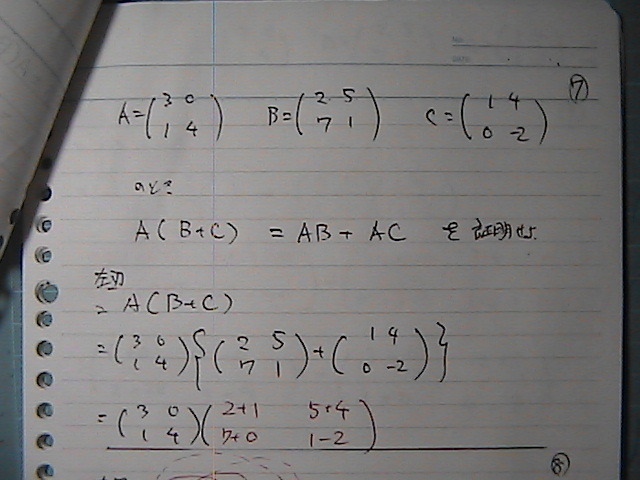 No.
DATE
⑦
A=(3 0 / 1 4) B=(2 5 / 7 1) C=(1 4 / 0 -2)
のとき
A(B+C) = AB + AC を証明せよ.
左辺
= A(B+C)
=(3 0 / 1 4){(2 5 / 7 1)+(1 4 / 0 -2)}
=(3 0 / 1 4)(2+1 5+4 / 7+0 1-2)
⑧